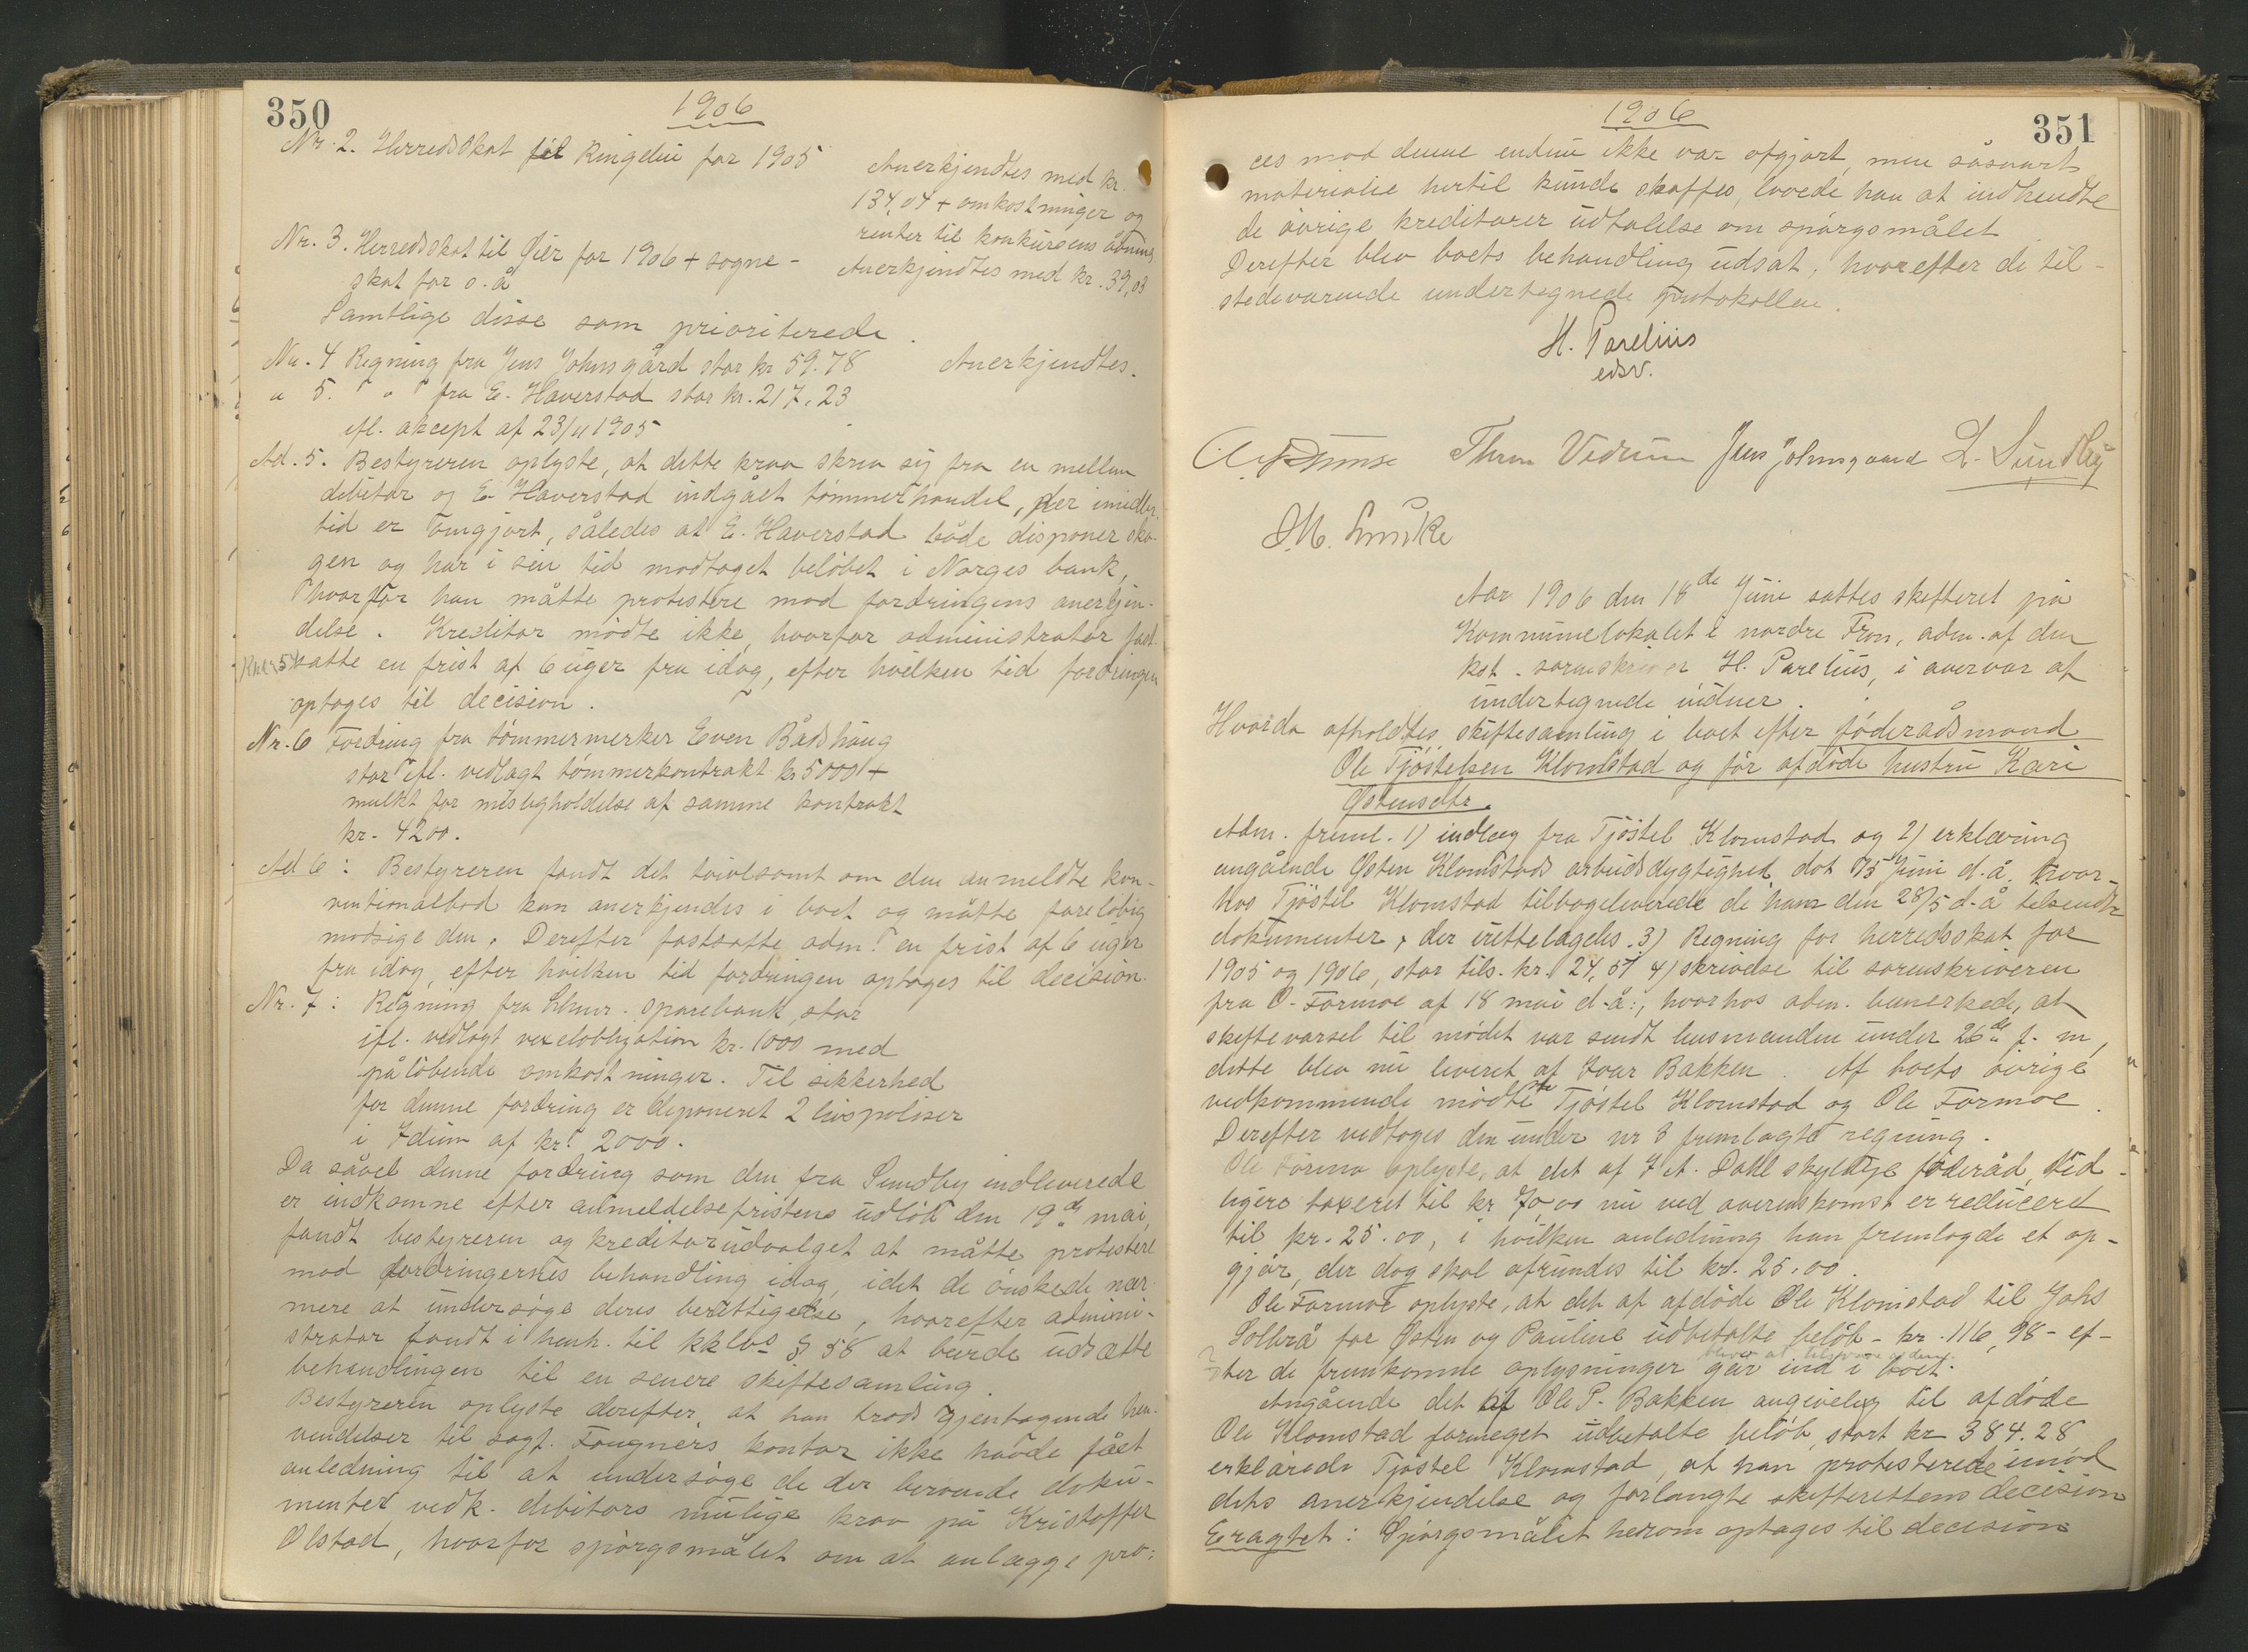 350
1906
Nr. 2. Herredsskat til Ringebu for 1905
Anerkjendtes med kr.
134,04 + omkostninger og
renter til konkursens åbning
Nr. 3. Herredsskat til Øier for 1906 + sogne-
skat for s. å
Anerkjendtes med kr. 39,03
Samtlige disse som prioriterede.
Nr. 4 Regning fra Jens Johnsgård stor kr 59.78
Anerkjendtes.
" 5. " " fra E. Haverstad stor kr. 217,23
ifl. akcept af 23/11 1905
Ad. 5. Bestyreren oplyste, at dette krav skrev sig fra en mellem
debitor og E. Haverstad indgået tømmerhandel, der imidler-
tid er omgjort, således at E. Haverstad både disponer sko-
gen og har i sin tid modtaget beløbet i Norges bank,
hvorfor han måtte protestere mod fordringens anerkjen-
delse. Kreditor mødte ikke, hvorfor administrator fast-
satte en frist af 6 uger fra idag, efter hvilken tid fordringen
optages til decision.
Nr. 6 Fordring fra tømmermerker Even Bådshaug
stor ifl. vedlagt tømmerkontrakt kr 5000 +
mulkt for misligholdelse af samme kontrakt
kr. 4200.
Ad 6: Bestyreren fandt det tvivlsomt om den anmeldte kon-
ventionalbod kan anerkjendes i boet og måtte foreløbig
modsige den. Derefter fastsatte adm. en frist af 6 uger
fra idag, efter hvilken tid fordringen optages til decision.
Nr. 7: Regning fra Lhmr. sparebank, stor
ifl. vedlagt vexelobligation kr. 1000 med
påløbende omkostninger. Til sikkerhed
for denne fordring er deponeret 2 livspoliser
i Idun af kr. 2000.
Da såvel denne fordring som den fra Sundby indleverede
er indkomne efter anmeldelsefristens udløb den 19de mai,
fandt bestyreren og kreditorudvalget at måtte protestere
mod fordringernes behandling idag, idet de ønskede nær-
mere at undersøge deres berettigelse, hvorefter admini-
strator fandt i henh. til kklvs § 58 at burde udsætte
behandlingen til en senere skiftesamling.
Bestyreren oplyste derefter, at han trods gjentagende hen-
vendelser til sagf. Fougners kontor ikke havde fået
anledning til at undersøge de der beroende doku-
menter vedk. debitors mulige krav på Kristoffer
Olstad, hvorfor spørgsmålet om at anlægge pro-
351
1906
ces mod denne endnu ikke var afgjort, men såsnart
materialie hertil kunde skaffes, lovede han at indhendte
de øvrige kreditorer udtalelse om spørgsmålet
Derefter blev boets behandling udsat, hvorefter de til-
stedeværende undertegnede protokollen.
H. Parelius
edsv.
Thron Vedum Jens Johnsgaard L. Sundby
Aar 1906 den 18de Juni sattes skifteret på
Kommunelokalet i nordre Fron, adm. af den
kst. sorenskriver H. Parelius, i overvær af
undertegnede vidner.
Hvorda afholdtes skiftesamling i boet efter føderådsmand
Ole Tjøstelsen Klomstad og før afdøde hustru Kari
Østensdtr.
Adm. freml. 1) indlæg fra Tjøstel Klomstad og 2) erklæring
angående Østen Klomstads arbeidsdygtighed, dat 15 Juni d. å. hvor-
hos Tjøstel Klomstad tilbageleverede de ham den 28/5 d. å tilsendte
dokumenter, der irettelagdes. 3) Regning for herredsskat for
1905 og 1906, stor tils. kr. 24,57 4) skrivelse til sorenskriveren
fra O. Formoe af 18 mai d. å:, hvorhos adm. bemerkede, at
skiftevarsel til mødet var sendt lensmanden under 26de f. m,
dette blev nu leveret af Ivar Bakken. Af boets øvrige
vedkommende mødte Tjøstel Klomstad og Ole Formoe.
Derefter vedtoges den under nr 3 fremlagte regning.
Ole Formo oplyste, at det af I A. Dahl skyldige føderåd, tid-
ligere taxeret til kr 70,00 nu ved overenskomst er reduceret
til kr. 25.00, i hvilken anledning han fremlagde et op-
gjør, der dog skal afrundes til kr. 25.00.
Ole Formoe oplyste, at det af afdøde Ole Klomstad til Johs
Solbrå for Østen og Pauline udbetalte beløb - kr. 116,98 - ef-
ter de fremkomne oplysninger går ind i boet.
Angående det af Ole P. Bakken angivelig til afdøde
Ole Klomstad formeget udbetalte beløb, stort kr 384.28
erklærede Tjøstel Klomstad, at han protesterede imod
dets anerkjendelse og forlangte skifterettens decision
Eragtet: Spørgsmålet herom optages til decision